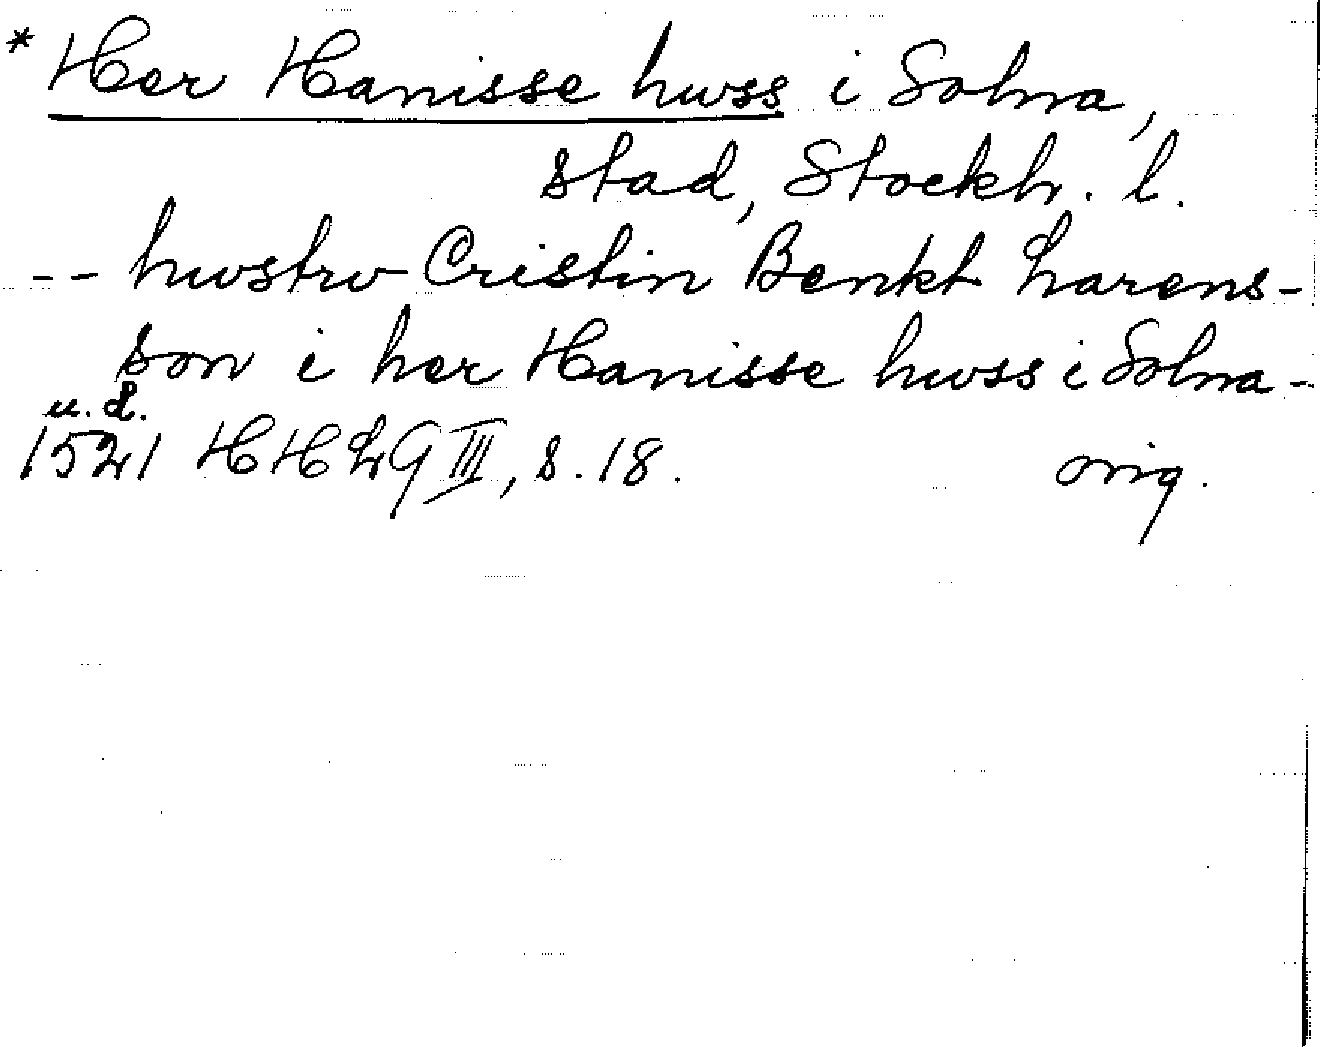 *Her Hanisse hwss i Solna,
stad, Stockh. l.
-- hwstrv Cristin Benkt Larens-
son i her Hanisse hwss i Solna--
u. d.
1521 HHLG III, s. 18. orig.